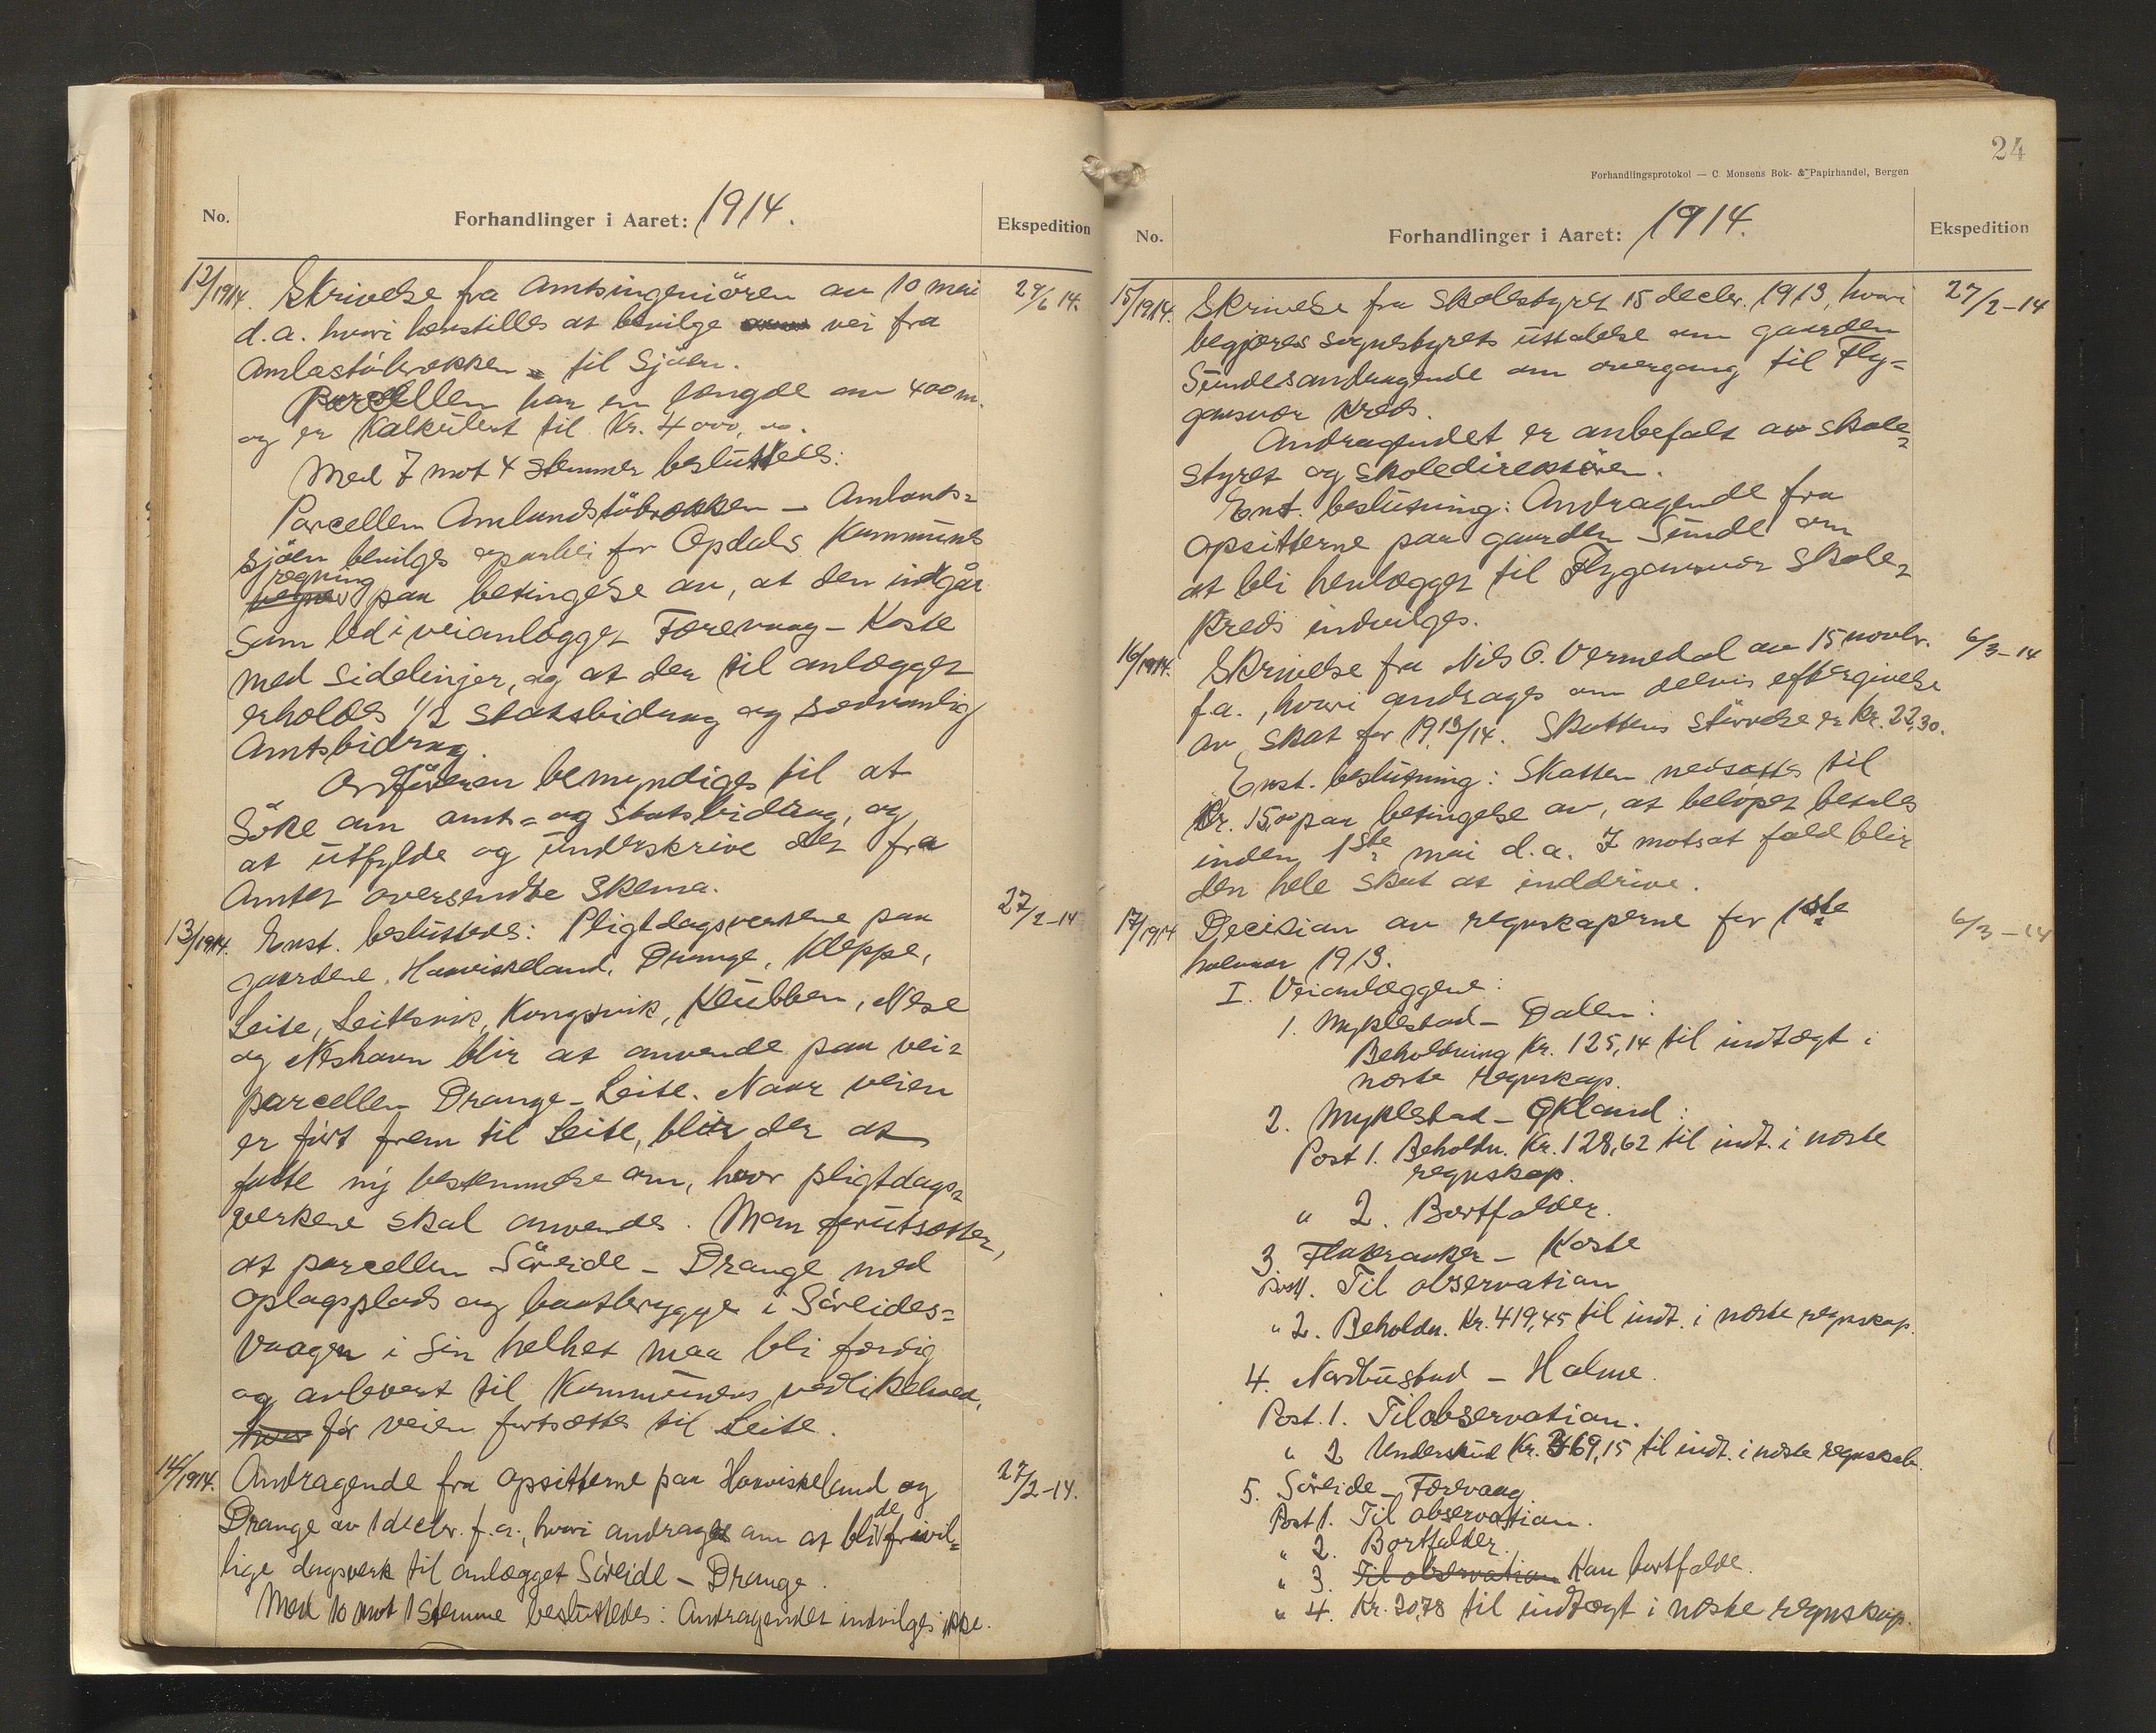 No.
Forhandlinger i Aaret: 1914.
Ekspedition
12/1914. Skrivelse fra Amtsingeniören av 10 mai 29/6 14.
d.a. hvori henstilles at bevilge vei fra
til Sjöen.
Parcellen har en længde av 400 m.
og er Kalkulert til Kr. 4000,00.
Med 7 mot 4 stemmer besluttedes:
Parcellen
sjöen bevilges oparbei for Opdals Kommunes
regning paa betingelse av, at den indgår
som led i veianlægget Færevaag - Koste
med sidelinjer, og at der til anlægget
erholdes 1/2 Statsbidrag og sedvanlig
Amtsbidrag.
Ordföreren bemyndiges til at
söke om amts- og Statsbidrag, og
at utfylde og underskrive det fra
Amtet oversendte Skema.
13/1914. Enst. besluttedes: Pligtdagsverkene paa 27/2-14
gaardene, Haaviskeland, Drange, Kleppe,
Leite, Leitesvik, Kongsvik, Klubben, Nese
og Neshavn blir at anvende paa vei-
parcellen Drange - Leite. Naar veien
er fört frem til Leite, blir der at
fatte ny bestemmelse om, hvor pligtdags-
verkene skal anvendes. Man forutsætter,
at parcellen Söreide - Drange med
oplagsplads og baatbrygge i Söreides-
vaagen i sin helhet maa bli færdig
og avlevert til Kommunens vedlikehold,
för veien fortsættes til Leite.
14/1914. Andragende fra opsitterne paa Haaviskeland og 27/2-14.
Drange av 1 decbr. f.a., hvori andrages om at bli de frivil-
lige dagsverk til anlægget Söreide - Drange.
Med 10 mot 1 stemme besluttedes: Andragendet indvilges ikke.
24
Forhandlingsprotokol — C. Monsens Bok- & Papirhandel, Bergen
No.
Forhandlinger i Aaret: 1914.
Ekspedition
15/1914. Skrivelse fra Skolestyret 15 decbr. 1913, hvori 27/2-14
begjæres sognestyrets uttalelse om gaarden
Sundes andragende om overgang til Fly-
gansvær Kreds.
Andragendet er anbefalt av skole-
styret og Skoledirektören.
Enst. beslutning: Andragende fra
opsitterne paa gaarden Sunde om
at bli henlægget til Flygansvær Skole-
kreds indvilges.
16/1914. Skrivelse fra Nils O. Vermedal av 15 novbr. 6/3-14
f.a., hvori andrages om delvis eftergivelse
av skat for 1913/14. Skattens störrelse er Kr. 22,30.
Enst. beslutning: Skatten nedsættes til
Kr. 15,00 paa betingelse av, at belöpet betales
inden 1ste mai d.a. I motsat fald blir
den hele skat at inddrive.
17/1914 Decision av regnskaperne for 1ste 6/3-14
halvaar 1913.
I. Veianlæggene:
1. Myklestad - Dalen:
Beholdning Kr. 125,14 til indtægt i
næste regnskap.
2. Myklestad - Økland:
Post 1. Beholdn. Kr. 128,62 til indt. i næste
regnskap.
" 2. Bortfalder.
3. - Koste
Post 1. Til observation
" 2. Beholdn. Kr. 419,45 til indt. i næste regnskap.
4. Nordbustad - Holme.
Post. 1. Til observation.
" 2 Underskud Kr. 369,15 til indt. i næste regnskab.
5. Söreide - Færevaag
Post 1. Til observation.
" 2. Bortfalder.
" 3. Til observation Kan bortfalde.
" 4. Kr. 20,78 til indtægt i næste regnskap.